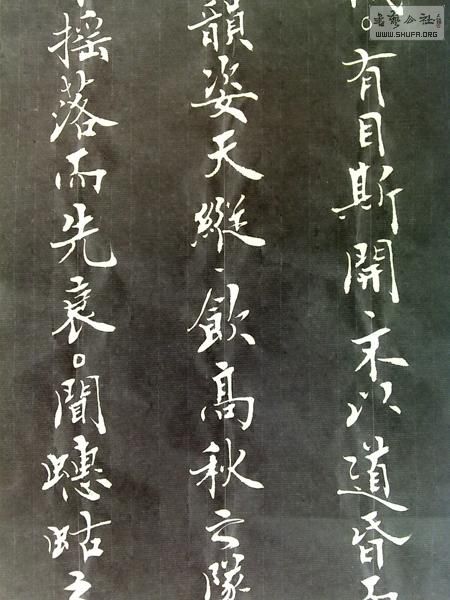 書藝公社
WWW.SHUFA.ORG
。有目斯開、不以道昏而
韻姿天縱、飲高秋之
摇落而先衰。聞蟪蛄之